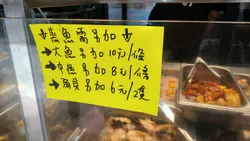 ↓魚需另加↓
→大魚另加10元/條
→中魚另加8元/條
→扇貝另加6元/2隻